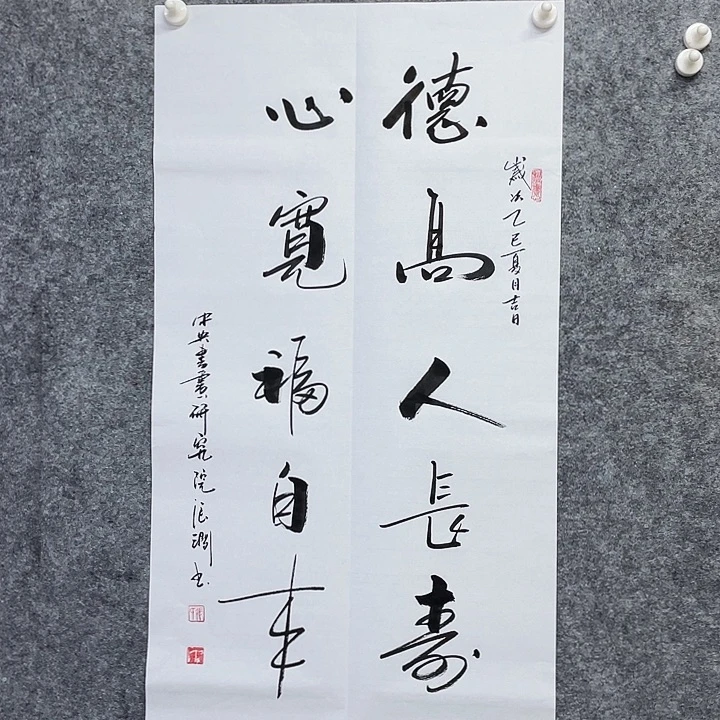 歲次乙巳夏月吉日
德高人長壽
心寬福自来
中央書畫研究院 书